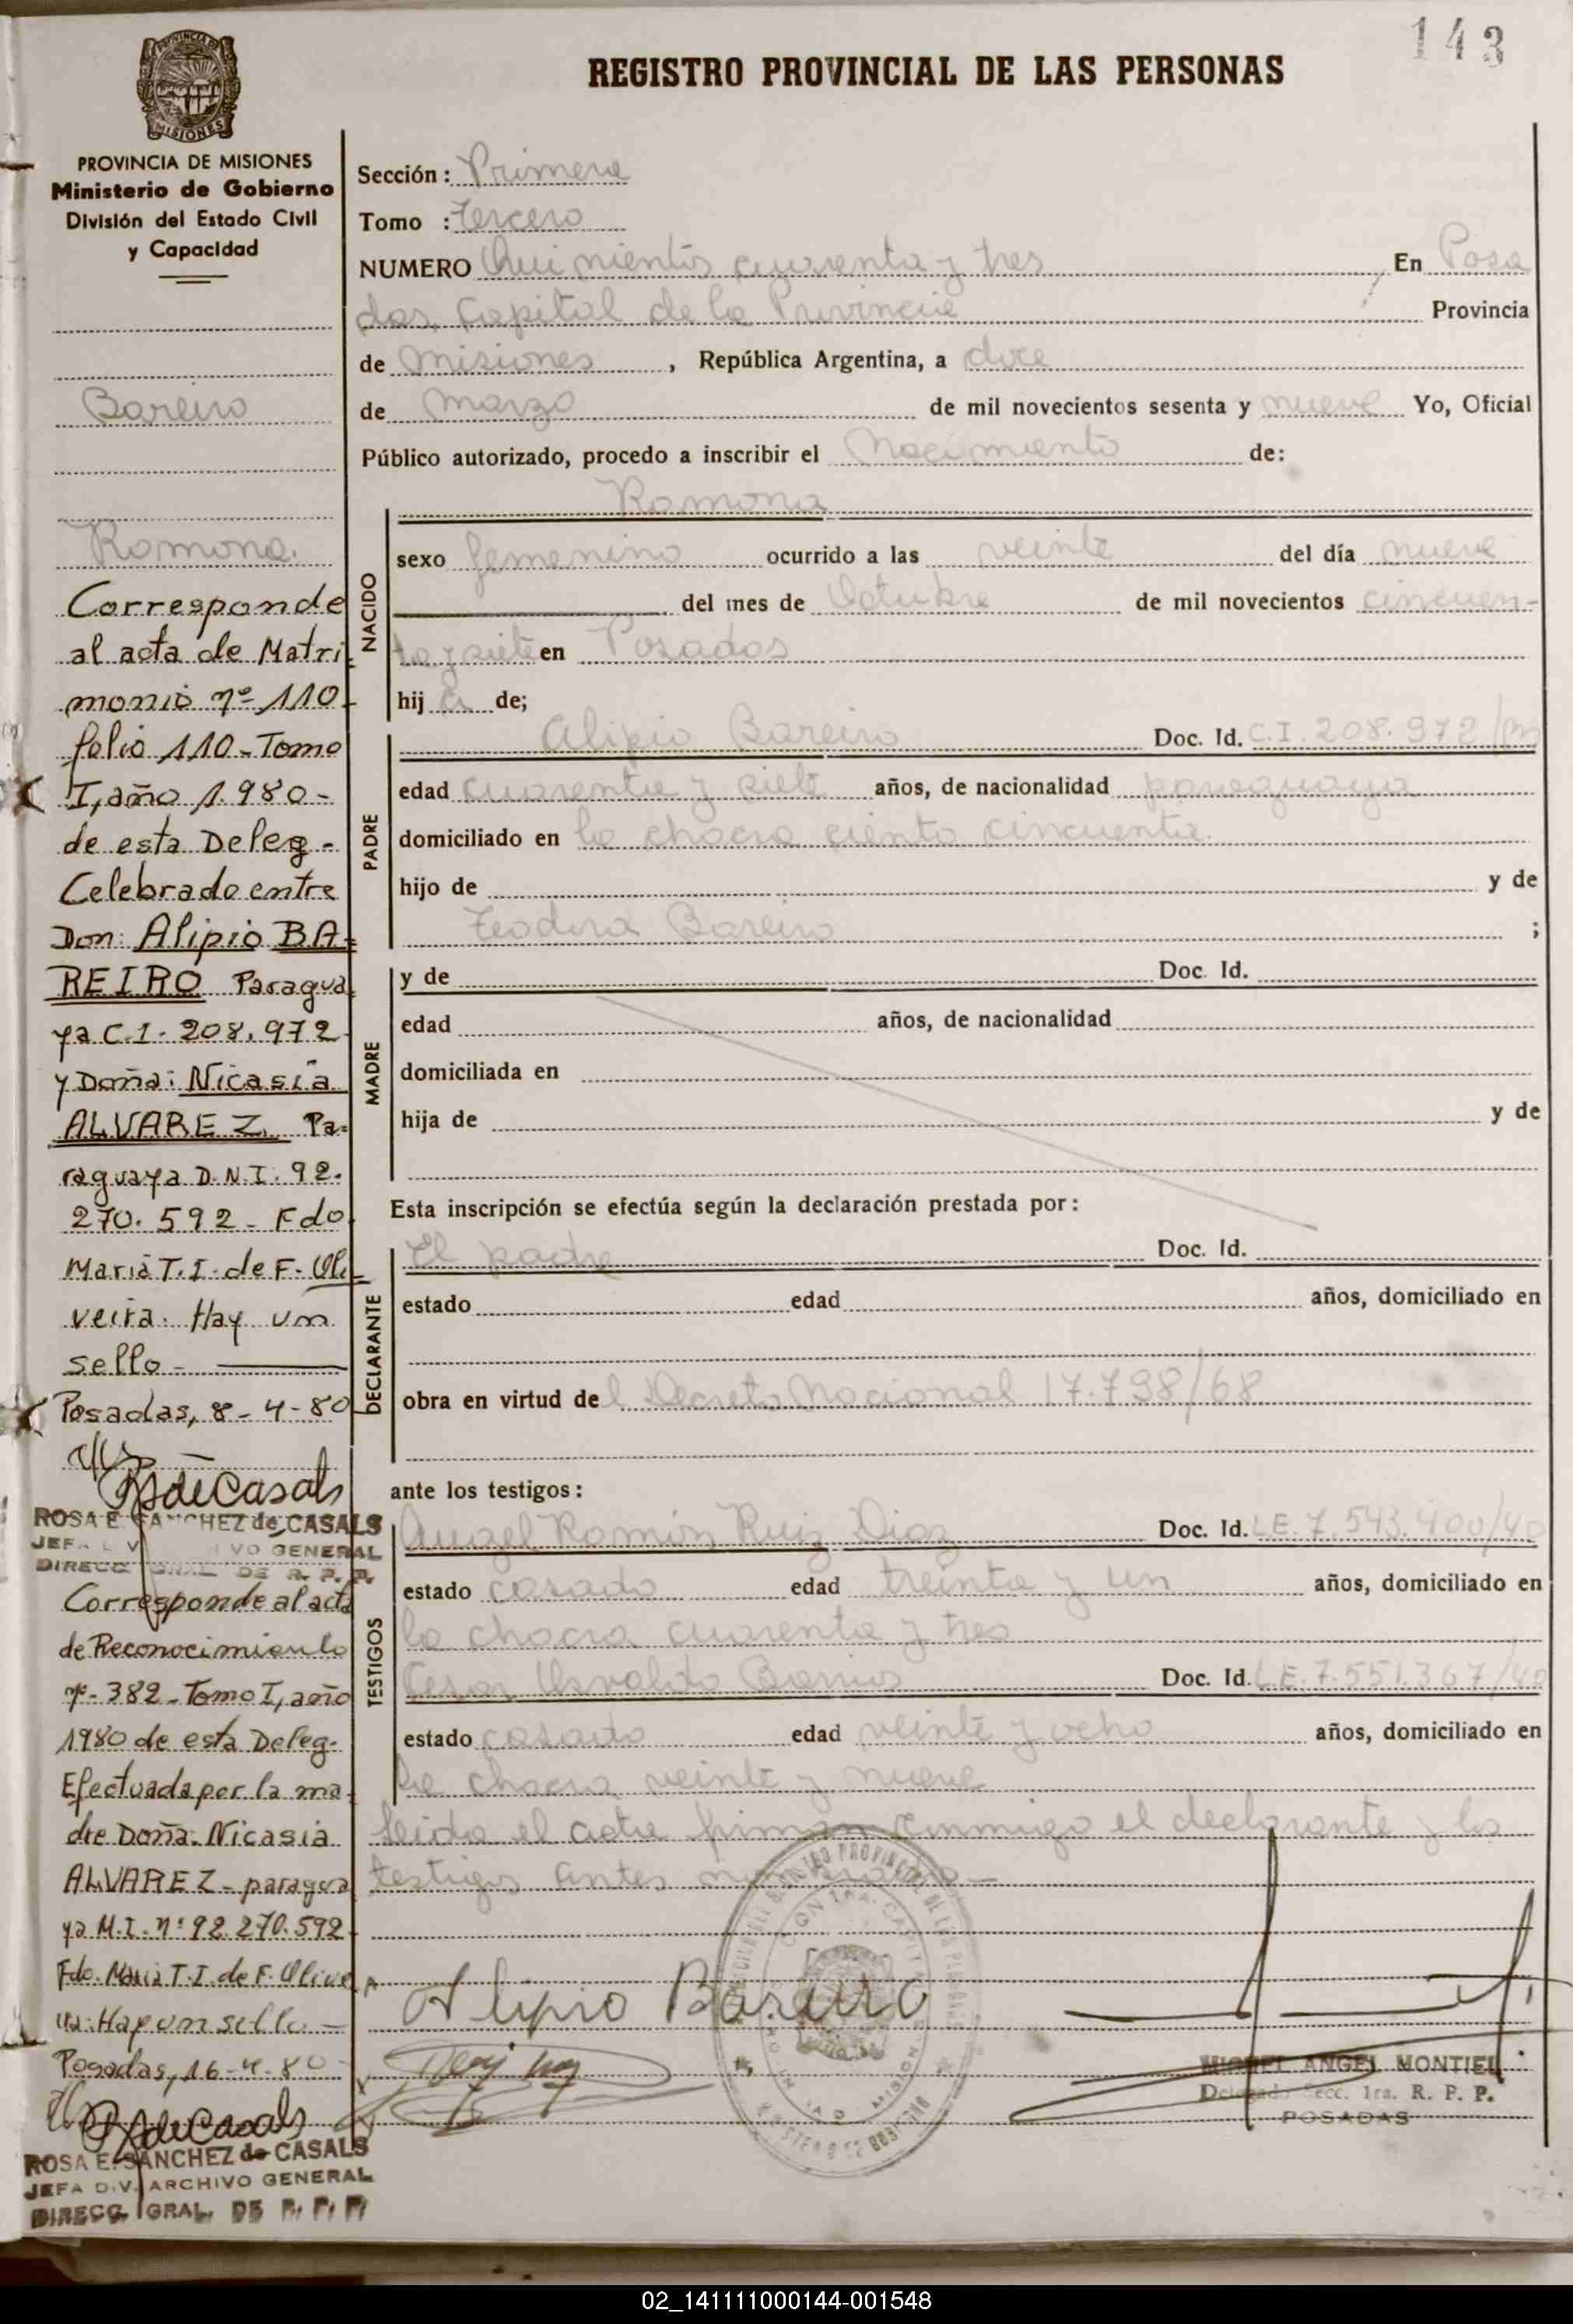 143
REGISTRO PROVINCIAL DE LAS PERSONAS
PROVINCIA DE MISIONES
MISIONES
PROVINCIA DE MISIONES
Ministerio de Gobierno
División del Estado Civil
y Capacidad
Bareiro
Ramona.
Corresponde
al acta de Matri
monio nº 110
folio 110 - Tomo
I, año 1.980 -
de esta Deleg -
Celebrado entre
Don: Alipio BA-
REIRO Paragua
ya C.I. 208.972
y Doña: Nicasia
ALVAREZ Pa-
raguaya D.N.I. 92.
270.592 - Fdo
Maria T.I. de F. Oli
veira. Hay um
sello -
Posadas, 8-4-80
RSdeCasals
ROSA E. SANCHEZ de CASALS
JEFA DIV. ARCHIVO GENERAL
DIRECC. GRAL. DE R. P. P.
Corresponde al acta
de Reconocimiento
nº 382 - Tomo I, año
1980 de esta Deleg.
Efectuada por la ma
dre Doña: Nicasia
ALVAREZ - paragua
ya M.I. nº 92.270.592
Fdo. Maria T.I. de F. Olivei
ra: Hay um sello -
Posadas, 16-4-80
RSdeCasals
ROSA E. SANCHEZ de CASALS
JEFA DIV. ARCHIVO GENERAL
DIRECC. GRAL. DE R. P. P.
Sección: Primera
Tomo : tercero
NUMERO Quinientos cuarenta y tres En Posa
das, Capital de la Provincia Provincia
de Misiones, República Argentina, a doce
de marzo de mil novecientos sesenta y nueve Yo, Oficial
Público autorizado, procedo a inscribir el Nacimiento de:
NACIDO
Ramona
sexo femenino ocurrido a las veinte del día nueve
del mes de Octubre de mil novecientos cincuen-
ta y siete en Posadas
hij a de;
PADRE
Alipio Bareiro Doc. Id. C.I. 208.972/m
edad cuarenta y siete años, de nacionalidad paraguaya
domiciliado en la chacra ciento cincuenta.
hijo de y de
Teodora Bareiro ;
MADRE
y de Doc. Id.
edad años, de nacionalidad
domiciliada en
hija de y de
Esta inscripción se efectúa según la declaración prestada por:
DECLARANTE
El padre Doc. Id.
estado edad años, domiciliado en
obra en virtud del Decreto Nacional 17.798/68
ante los testigos:
TESTIGOS
Angel Ramón Ruiz Diaz Doc. Id. L.E. 7.543.400/40
estado casado edad treinta y un años, domiciliado en
la chacra cuarenta y tres
Cesar Osvaldo Barrios Doc. Id. L.E. 7.551.367/40
estado casado edad veinte y ocho años, domiciliado en
la chacra veinte y nueve
leida el acta firman conmigo el declarante y los
testigos antes
Alipio Bareiro
MIGUEL ANGEL MONTIEL
Delegado Secc. 1ra. R. P. P.
POSADAS
02_141111000144-001548